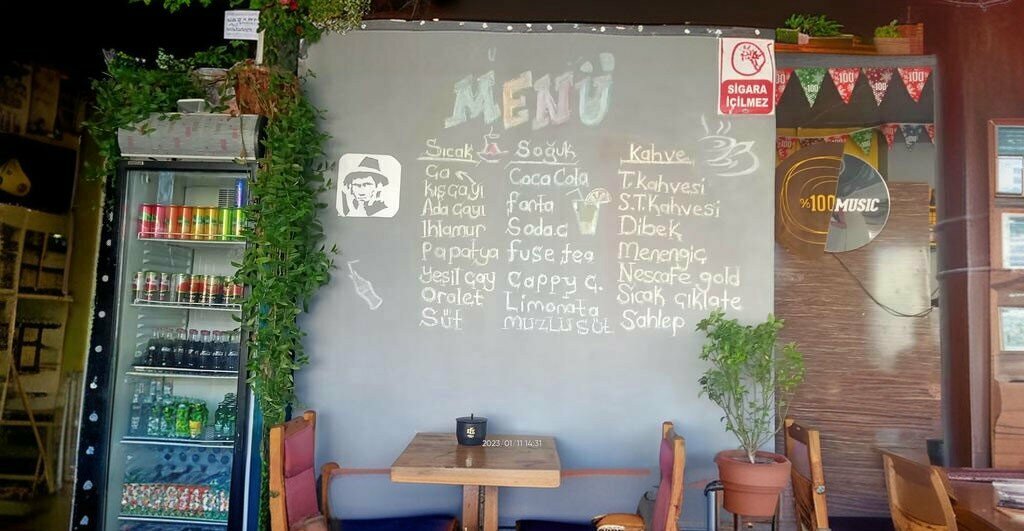 MENÜ
SİGARA
İÇİLMEZ
Sıcak
Ça
Kış Çayı
Ada Çayı
Ihlamur
Papatya
Yeşil Çay
Oralet
Süt
Soğuk
Coca Cola
fanta
Soda.ç
fuse tea
Cappy ç.
Limonata
MUZLU SÜt
Kahve
T. Kahvesi
S.T. Kahvesi
Dibek
Menengiç
Nescafe gold
Sıcak çıklate
Sahlep
%100 MUSIC
%100
%100
%100
2023/01/11 14:31